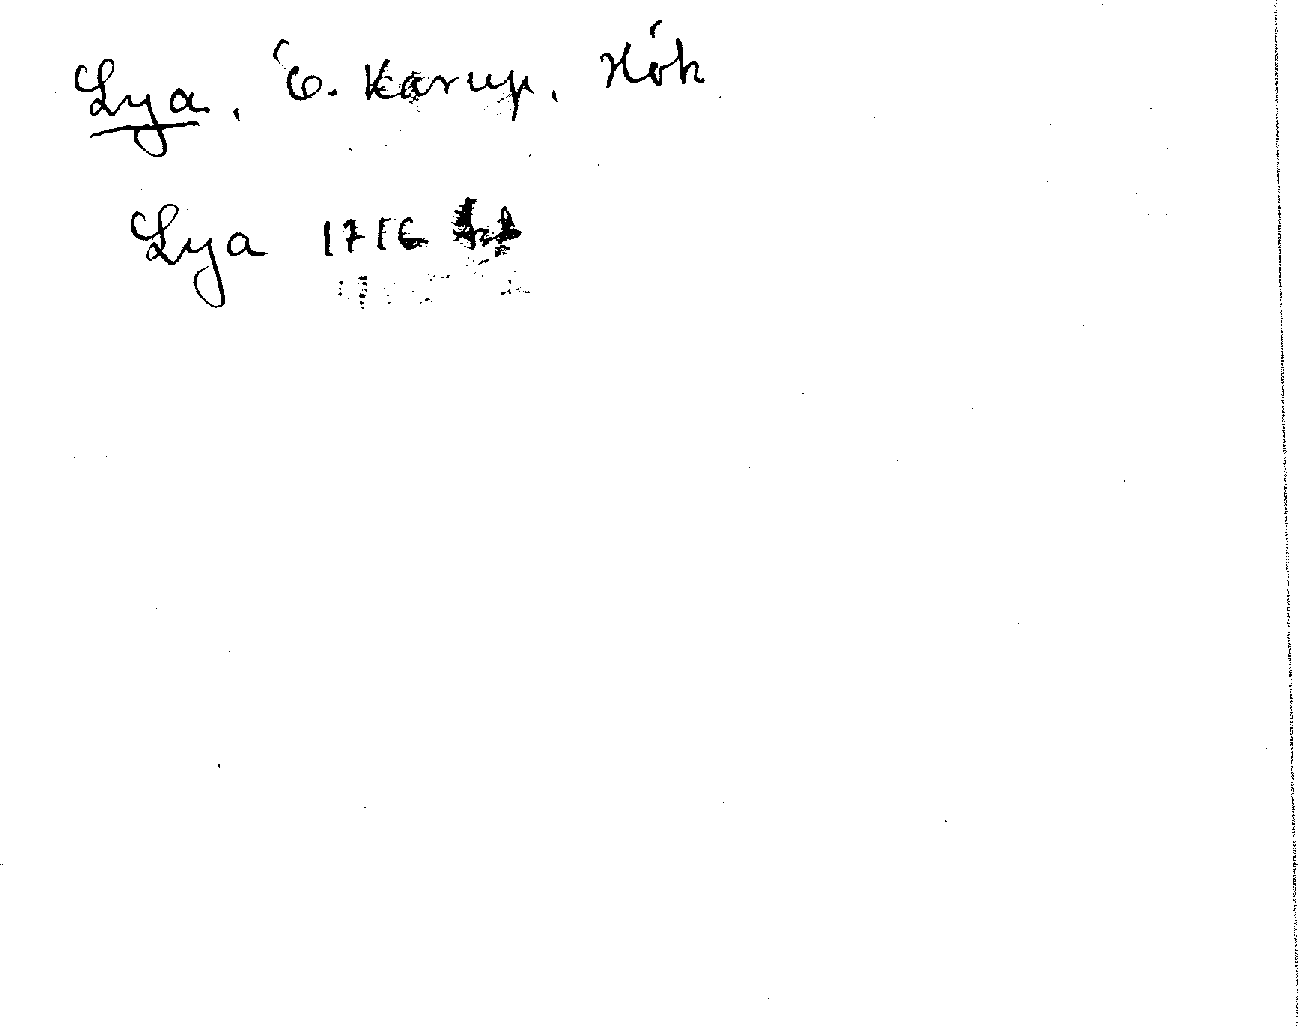 Lya, Ö. Karup, Hök
Lya 1716